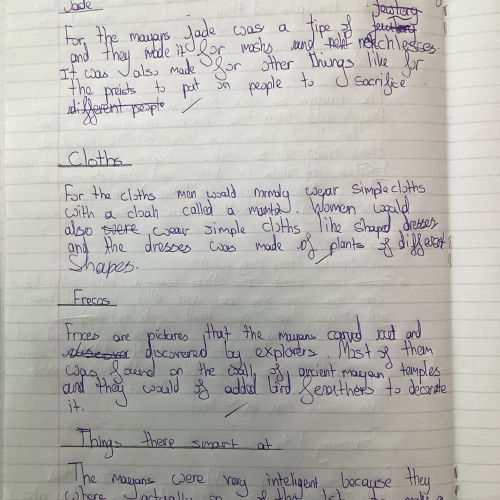 Jade
Jewlery
For the mayans Jade was a tipe of
and they made it for masks and necklesses.
It was also made for other things like for
the preists to put on people to sacrifice.
different people
Cloths
For the cloths men would normaly wear simple cloths
with a cloak called a manta. Women would
also were wear simple cloths like shaped dresses
and the dresses was made of plants of different
Shapes.
Frecos
Frices are pictures that the mayans carved out and
discover discovered by explorers. Most of them
was found on the walls of ancient mayan temples
and they would of added bird feathers to decorate
it.
Things there smart at
The mayans were very inteligent because they